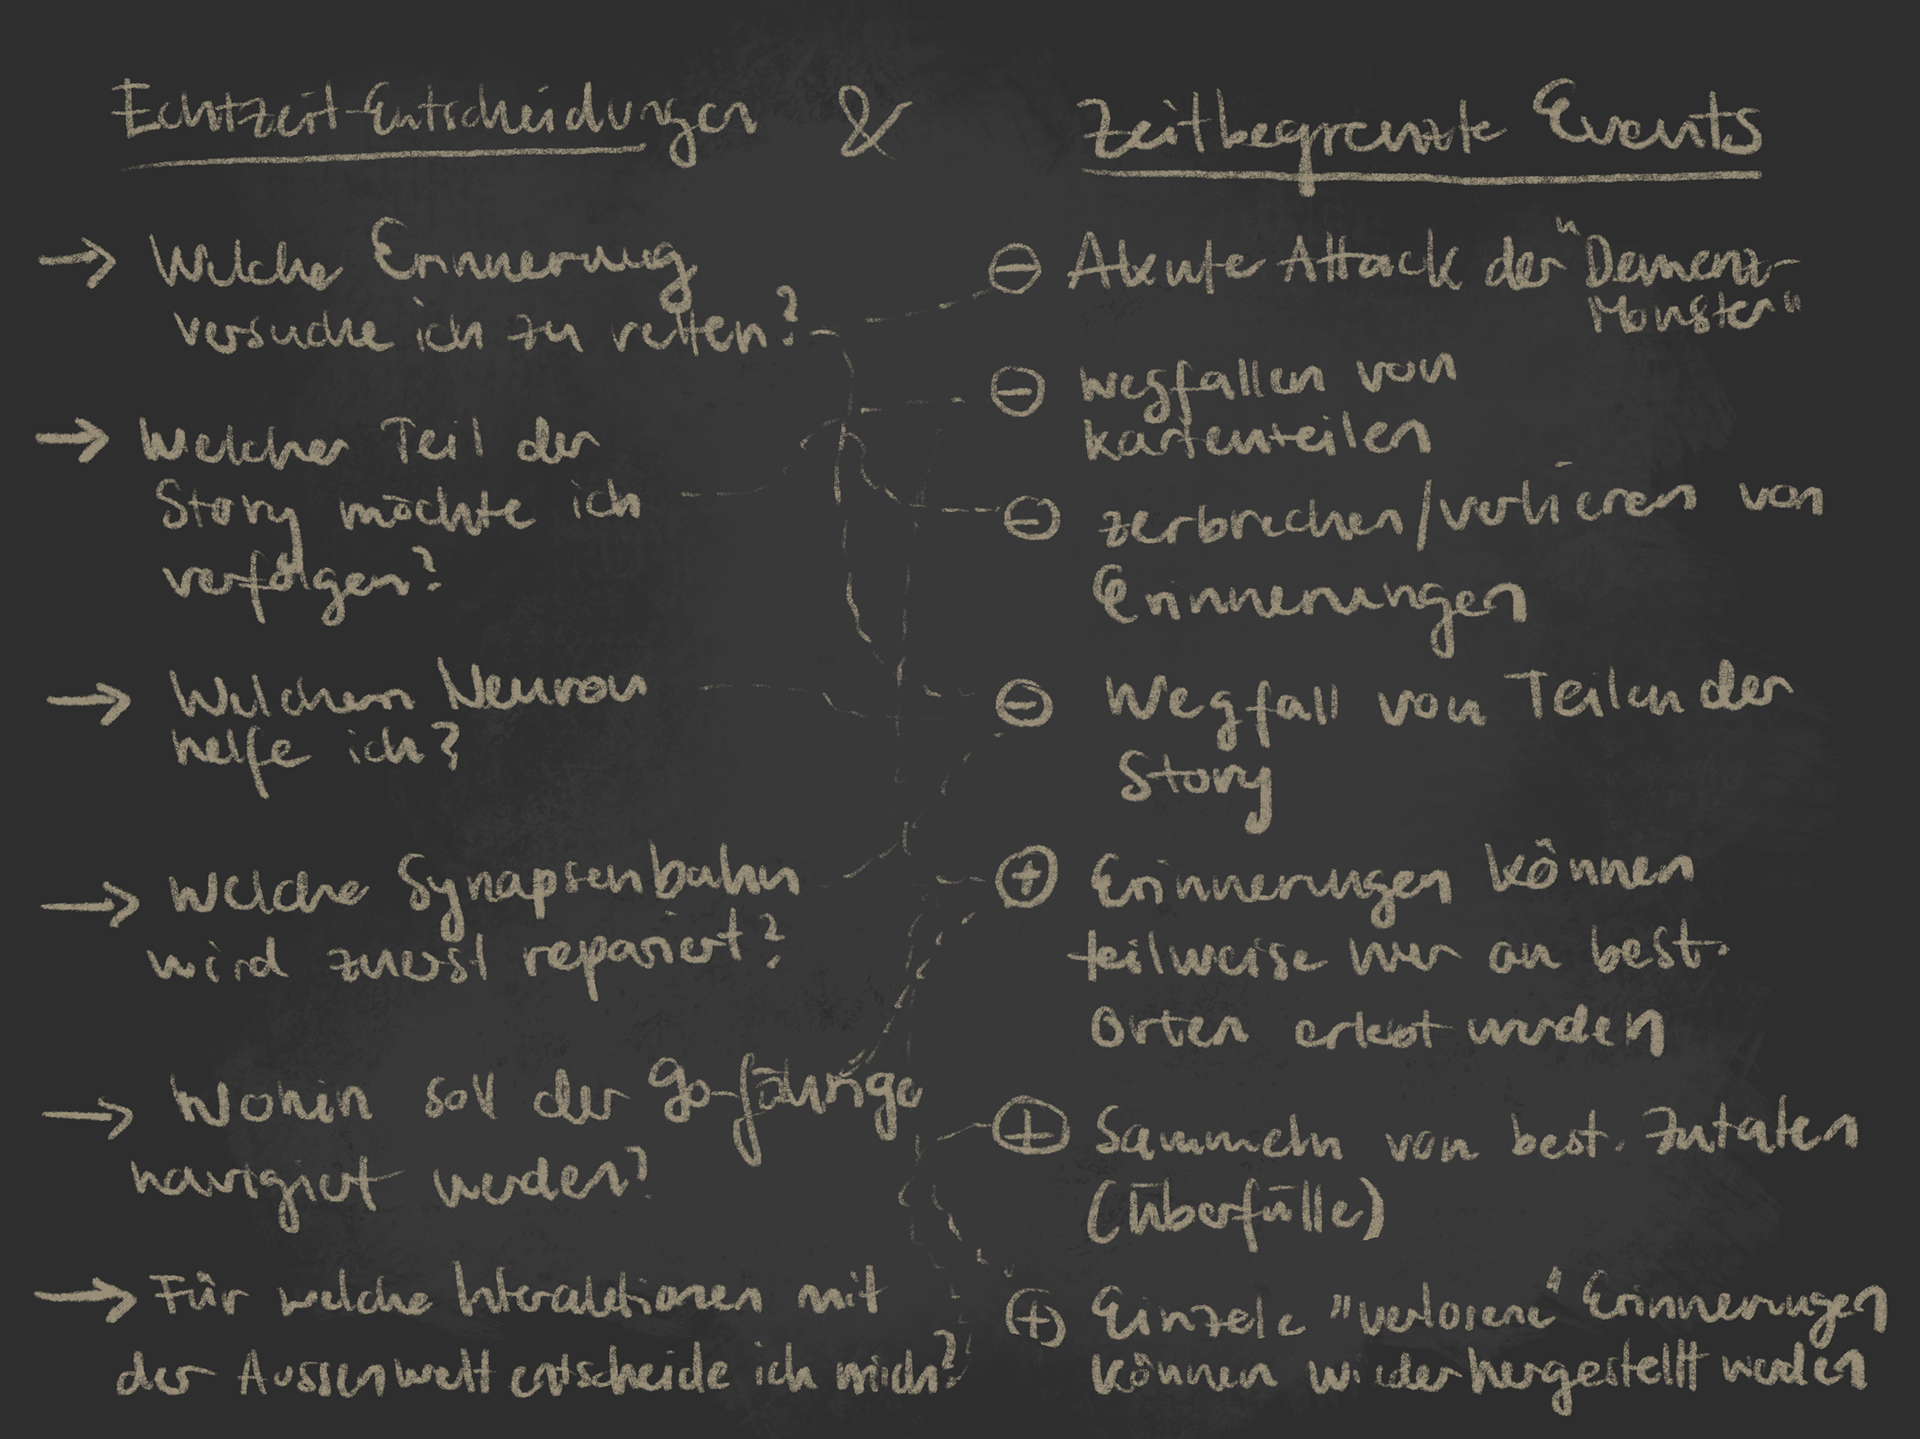 Echtzeit-Entscheidungen & Zeitbegrenzte Events
→ Welche Erinnerung
versuche ich zu retten?
→ Welcher Teil der
Story möchte ich
verfolgen?
→ Welchem Neuron
helfe ich?
→ Welche Synapsenbahn
wird zuerst repariert?
→ Wohin soll der 90-jährige
navigiert werden?
→ Für welche Interaktionen mit
der Aussenwelt entscheide ich mich?
⊖ Akute Attack der "Demenz-
Monster"
⊖ wegfallen von
kartenteilen
⊖ zerbrechen/verlieren von
Erinnerungen
⊖ Wegfall von Teilen der
Story
⊕ Erinnerungen können
teilweise nur an best.
Orten erlebt werden
⊕ Sammeln von best. Zutaten
(Überfülle)
⊕ Einzele "verlorene" Erinnerungen
können wiederhergestellt werden